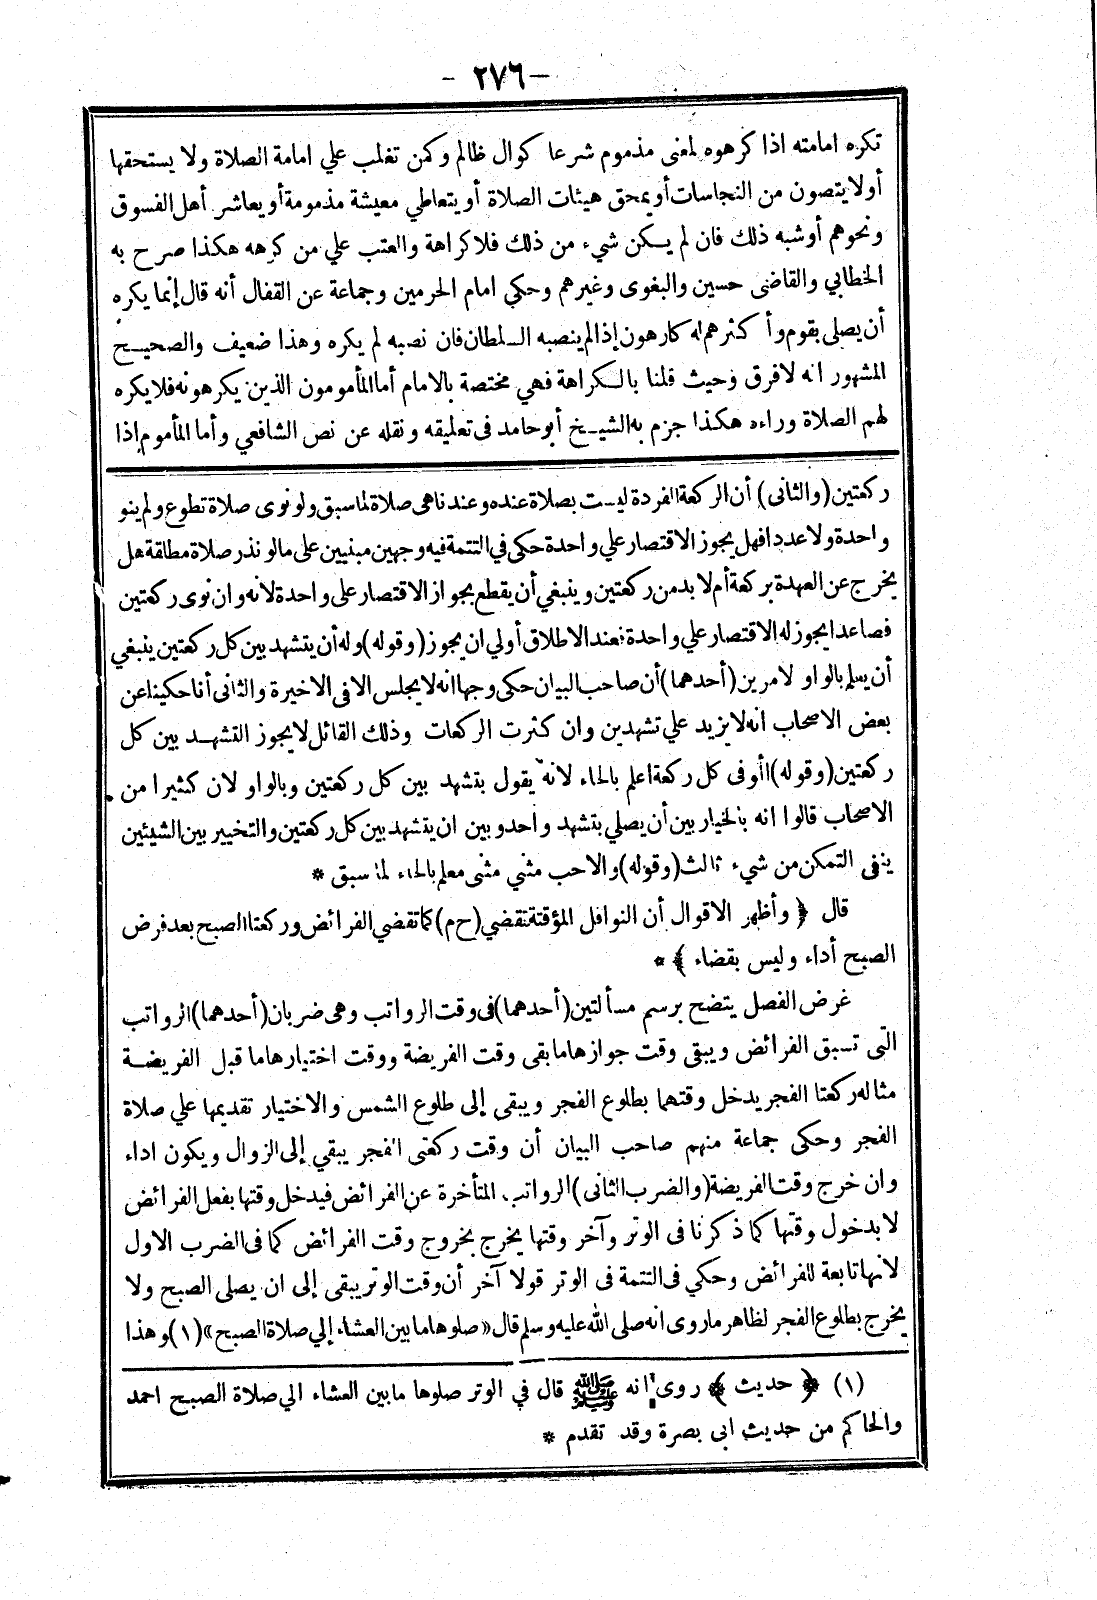 - ٢٧٦ -
تكره امامته اذا كرهوه لمعنى مذموم شرعا كوال ظالم وكمن تغلب علي امامة الصلاة ولا يستحقها
أولا يتصون من النجاسات أو يمحق هيئات الصلاة أو يتعاطي معيشة مذمومة أو يعاشر أهل الفسوق
ونحوهم أو شبه ذلك فان لم يكن شيء من ذلك فلا كراهة والعتب علي من كرهه هكذا صرح به
الخطابي والقاضى حسين والبغوى وغيرهم وحكي امام الحرمين وجماعة عن القفال أنه قال إنما يكره
أن يصلى بقوم وأكثرهم له كارهون إذا لم ينصبه السلطان فان نصبه لم يكره وهذا ضعيف والصحيح
المشهور انه لا فرق وحيث قلنا بالكراهة فهي مختصة بالامام أما المأمومون الذين يكرهونه فلا يكره
لهم الصلاة وراءه هكذا جزم به الشيخ أبو حامد فى تعليقه ونقله عن نص الشافعي وأما المأموم إذا
ركعتين (والثانى) أن الركعة الفردة ليست بصلاة عنده وعندنا هى صلاة لما سبق ولو نوى صلاة تطوع ولم ينو
واحدة ولا عددا فهل يجوز الاقتصار علي واحدة حكى في التتمة فيه وجهين مبنيين على ما لو نذر صلاة مطلقة هل
يخرج عن العهدة بركعة أم لا بد من ركعتين وينبغي أن يقطع بجواز الاقتصار على واحدة لانه وان نوى ركعتين
فصاعدا يجوز له الاقتصار علي واحدة فعند الاطلاق أولي ان يجوز (وقوله) وله أن يتشهد بين كل ركعتين ينبغي
أن يعلم بالواو لامرين (أحدهما) أن صاحب البيان حكى وجها انه لا يجلس الا فى الاخيرة والثانى أنا حكينا عن
بعض الاصحاب انه لا يزيد علي تشهدين وان كثرت الركعات وذلك القائل لا يجوز التشهد بين كل
ركعتين (وقوله) أو فى كل ركعة اعلم بالحاء لانه يقول يتشهد بين كل ركعتين وبالواو لان كثيرا من
الاصحاب قالوا انه بالخيار بين أن يصلي بتشهد واحد وبين ان يتشهد بين كل ركعتين والتخيير بين الشيئين
ينفى التمكن من شيء ثالث (وقوله) والاحب مثني مثنى معلم بالحاء لما سبق *
قال ﴿ وأظهر الاقوال أن النوافل المؤقتة تقضي (ح م) كما تقضي الفرائض وركعتا الصبح بعد فرض
الصبح أداء وليس بقضاء ﴾ *
غرض الفصل يتضح برسم مسألتين (أحدهما) فى وقت الرواتب وهى ضربان (أحدهما) الرواتب
التى تسبق الفرائض ويبقى وقت جوازها ما بقى وقت الفريضة ووقت اختيارها ما قبل الفريضة
مثاله ركعتا الفجر يدخل وقتهما بطلوع الفجر ويبقى إلى طلوع الشمس والاختيار تقديمها علي صلاة
الفجر وحكى جماعة منهم صاحب البيان أن وقت ركعتى الفجر يبقي إلى الزوال ويكون اداء
وان خرج وقت الفريضة (والضرب الثانى) الرواتب المتأخرة عن الفرائض فيدخل وقتها بفعل الفرائض
لا بدخول وقتها كما ذكرنا فى الوتر وآخر وقتها يخرج بخروج وقت الفرائض كما فى الضرب الاول
لانها تابعة للفرائض وحكي فى التتمة فى الوتر قولا آخر أن وقت الوتر يبقى إلى ان يصلى الصبح ولا
يخرج بطلوع الفجر لظاهر ما روى انه صلى الله عليه وسلم قال « صلوها ما بين العشاء إلي صلاة الصبح » (١) وهذا
(١) ﴿ حديث ﴾ روى انه ﷺ قال في الوتر صلوها ما بين العشاء الي صلاة الصبح احمد
والحاكم من حديث ابى بصرة وقد تقدم *